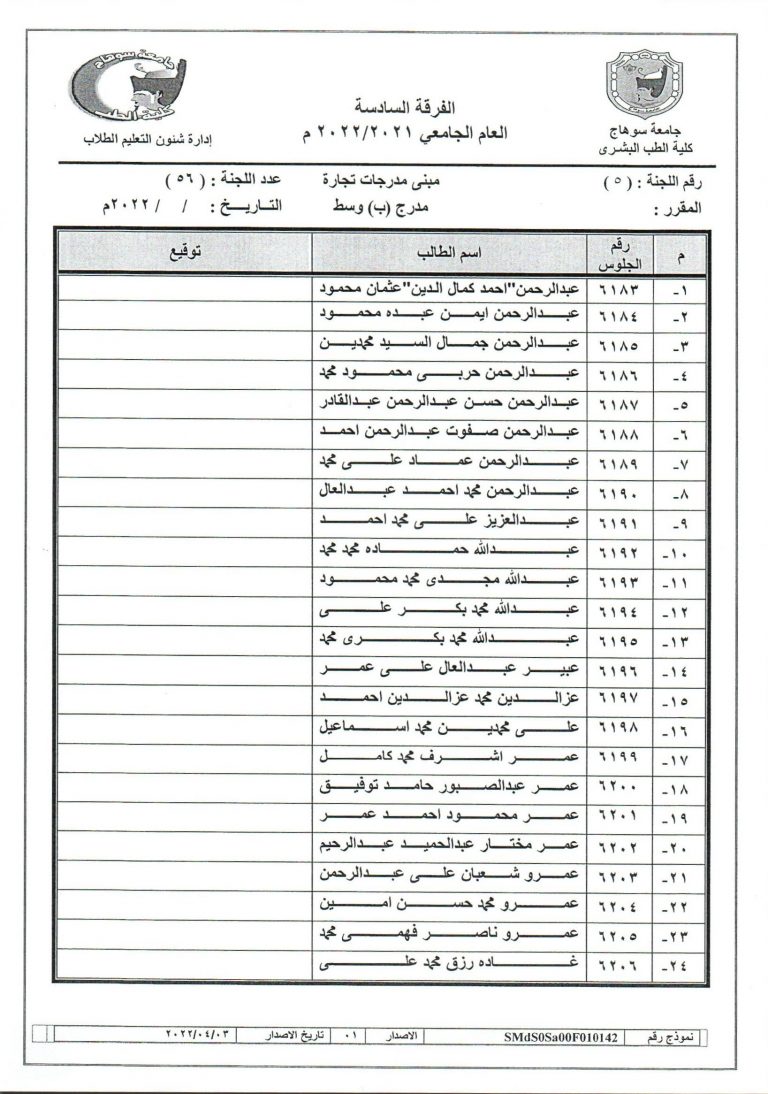 جامعة سوهاج
كلية الطب
جامعة سوهاج
كلية الطب البشرى
الفرقة السادسة
العام الجامعي ٢٠٢٢/٢٠٢١ م
إدارة شئون التعليم الطلاب
رقم اللجنة : (٥)
مبنى مدرجات تجارة
عدد اللجنة : (٥٦)
المقرر :
مدرج (ب) وسط
التاريخ : / / ٢٠٢٢م
م رقم الجلوس اسم الطالب توقيع
١- ٦١٨٣ عبدالرحمن"احمد كمال الدين"عثمان محمود
٢- ٦١٨٤ عبدالرحمن ايمن عبده محمود
٣- ٦١٨٥ عبدالرحمن جمال السيد محمدين
٤- ٦١٨٦ عبدالرحمن حربى محمود محمد
٥- ٦١٨٧ عبدالرحمن حسن عبدالرحمن عبدالقادر
٦- ٦١٨٨ عبدالرحمن صفوت عبدالرحمن احمد
٧- ٦١٨٩ عبدالرحمن عماد على محمد
٨- ٦١٩٠ عبدالرحمن محمد احمد عبدالعال
٩- ٦١٩١ عبدالعزيز على محمد احمد
١٠- ٦١٩٢ عبدالله حماده محمد محمد
١١- ٦١٩٣ عبدالله مجدى محمد محمود
١٢- ٦١٩٤ عبدالله محمد بكر على
١٣- ٦١٩٥ عبدالله محمد بكرى محمد
١٤- ٦١٩٦ عبير عبدالعال على عمر
١٥- ٦١٩٧ عزالدين محمد عزالدين احمد
١٦- ٦١٩٨ على محمدين محمد اسماعيل
١٧- ٦١٩٩ عمر اشرف محمد كامل
١٨- ٦٢٠٠ عمر عبدالصبور حامد توفيق
١٩- ٦٢٠١ عمر محمود احمد عمر
٢٠- ٦٢٠٢ عمر مختار عبدالحميد عبدالرحيم
٢١- ٦٢٠٣ عمرو شعبان على عبدالرحمن
٢٢- ٦٢٠٤ عمرو محمد حسن امين
٢٣- ٦٢٠٥ عمرو ناصر فهمى محمد
٢٤- ٦٢٠٦ غاده رزق محمد على
نموذج رقم SMdS0Sa00F010142 الاصدار ٠١ تاريخ الاصدار ٢٠٢٢/٠٤/٠٣